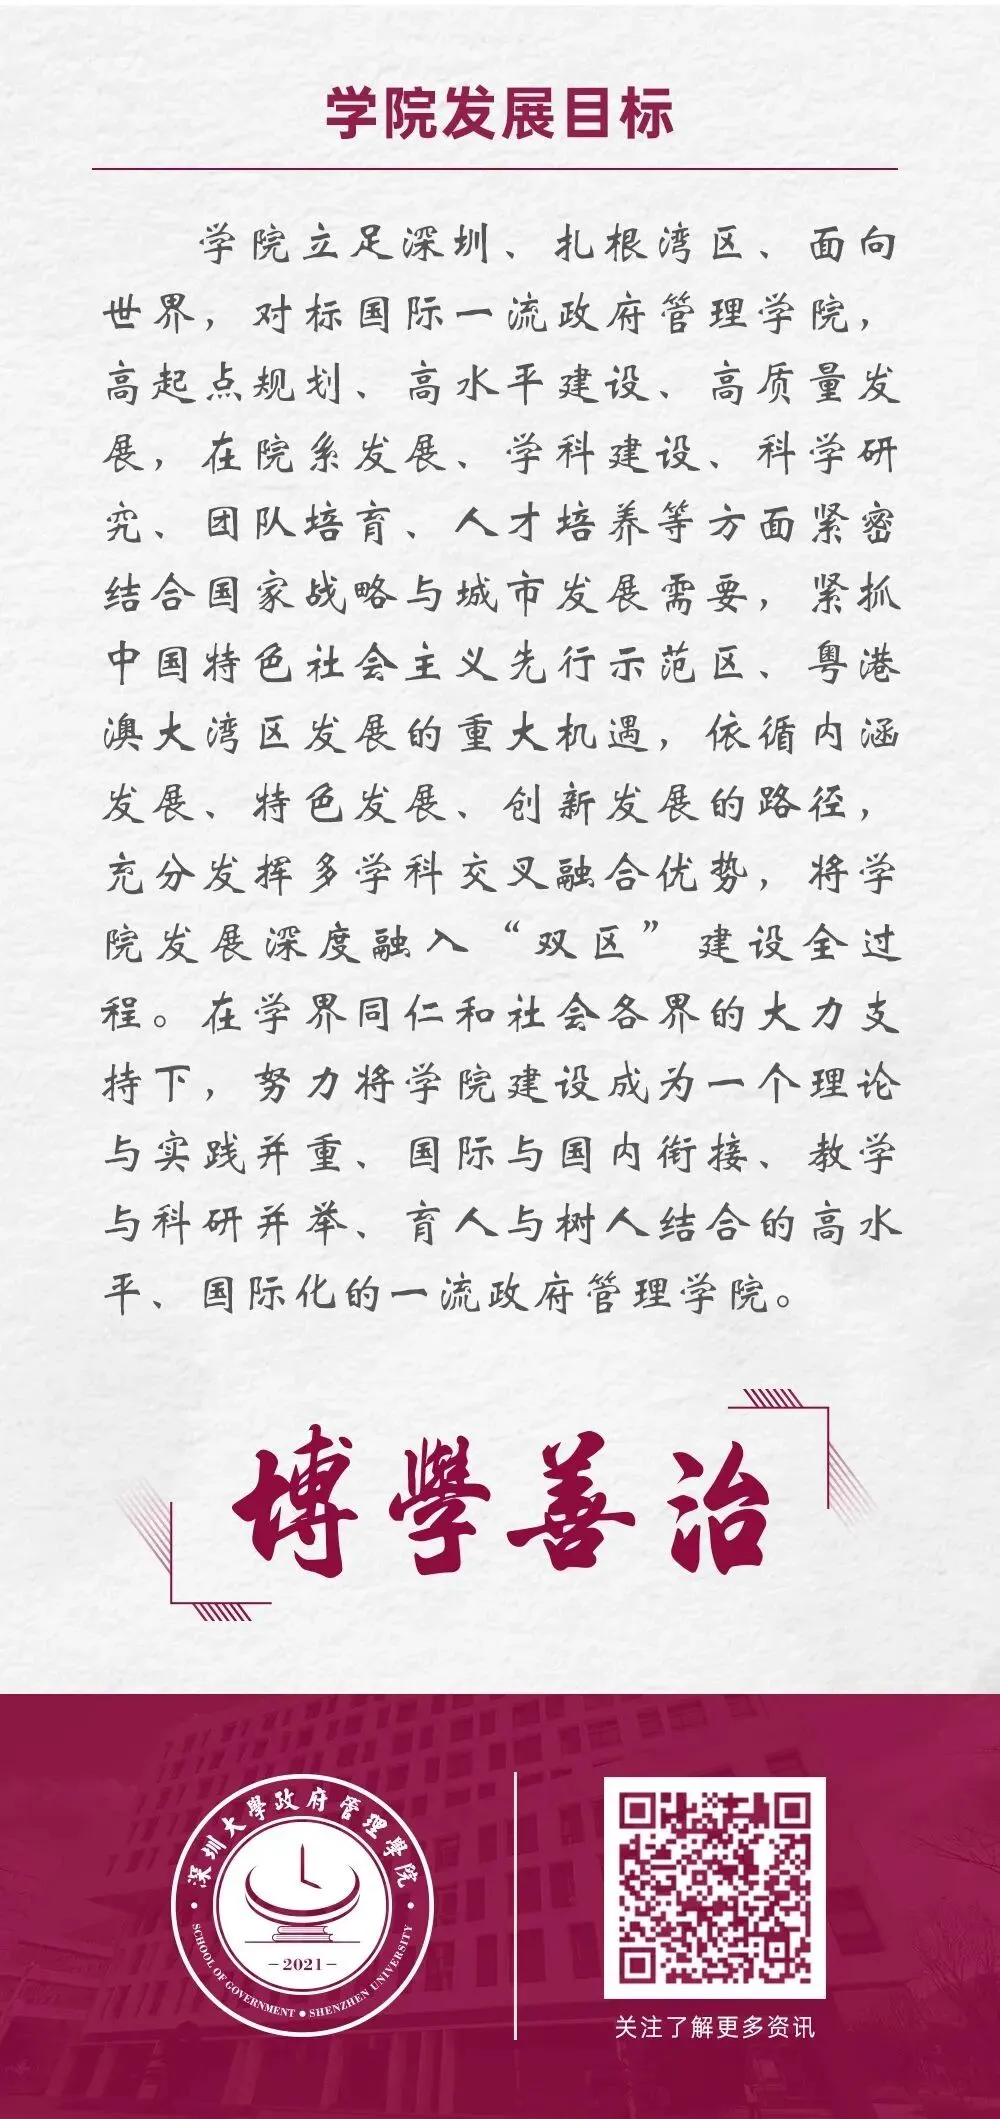 学院发展目标
学院立足深圳、扎根湾区、面向
世界，对标国际一流政府管理学院，
高起点规划、高水平建设、高质量发
展，在院系发展、学科建设、科学研
究、团队培育、人才培养等方面紧密
结合国家战略与城市发展需要，紧抓
中国特色社会主义先行示范区、粤港
澳大湾区发展的重大机遇，依循内涵
发展、特色发展、创新发展的路径，
充分发挥多学科交叉融合优势，将学
院发展深度融入“双区”建设全过
程。在学界同仁和社会各界的大力支
持下，努力将学院建设成为一个理论
与实践并重、国际与国内衔接、教学
与科研并举、育人与树人结合的高水
平、国际化的一流政府管理学院。
博學善治
深圳大學政府管理學院
-2021-
SCHOOL OF GOVERNMENT ● SHENZHEN UNIVERSITY
关注了解更多资讯